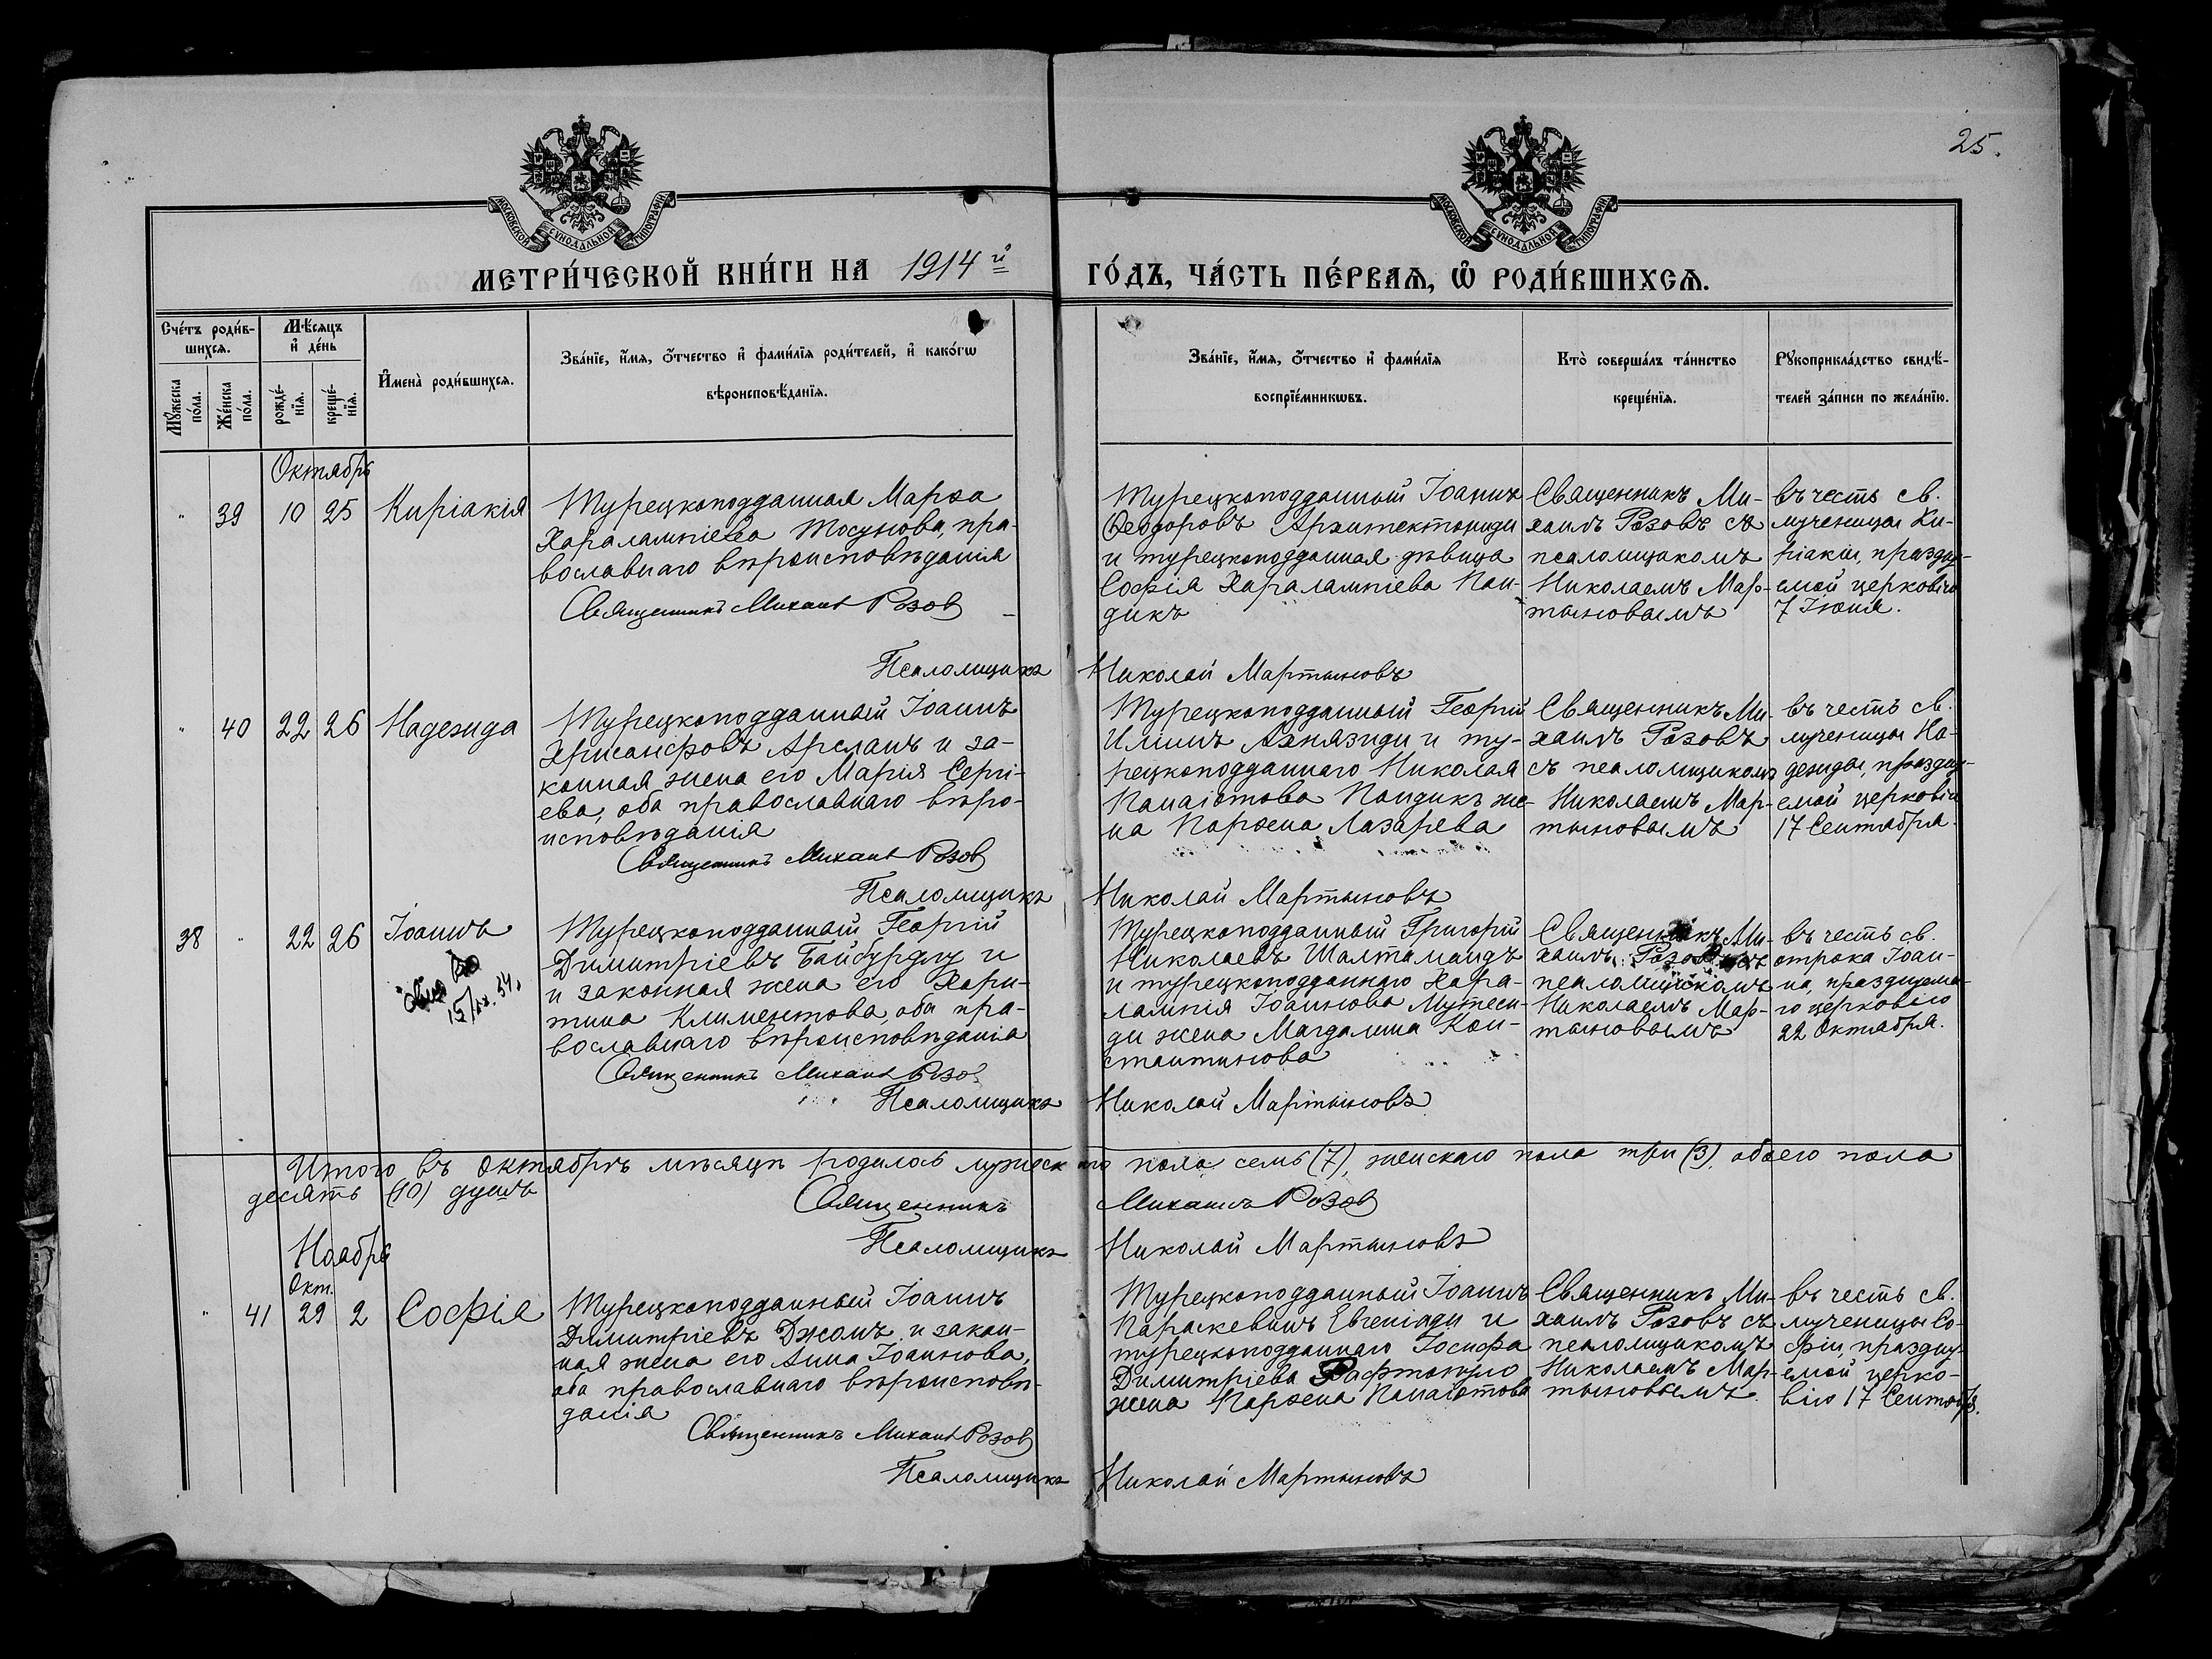 25.
МОСКОВСКОЙ СУНОДАЛЬНОЙ ТИПОГРАФІИ
МОСКОВСКОЙ СУНОДАЛЬНОЙ ТИПОГРАФІИ
МЕТРИ́ЧЕСКОЙ КНИ́ГИ НА 1914 й ГО́ДЪ, ЧА́СТЬ ПЕ́РВАѦ, Ѿ РОДИ́ВШИХСѦ.
Сче́тъ роди́в-
шихсѧ.
Мѣ́сѧцъ
и҆ де́нь
Мꙋ́жеска
по́ла.
Же́нска
по́ла.
рожде́-
нїѧ.
креще́-
нїѧ.
И҆мена̀ роди́вшихсѧ.
Зва́нїе, и҆́мѧ, ѻ҆́тчество и҆ фами́лїѧ роди́телей, и҆ како́гѡ
вѣроисповѣ́данїѧ.
Зва́нїе, и҆́мѧ, ѻ҆́тчество и҆ фами́лїѧ
воспрїе́мникѡвъ.
Кто̀ соверша́лъ та́инство
креще́нїѧ.
Рꙋкоприкла́дство свидѣ́-
телей за́писи по жела́нїю.
Октябрь
" 39 10 25 Киріакія
Турецкоподданная Марѳа
Харалампіева Тосунова, пра-
вославнаго вѣроисповѣданія
Священникъ Михаил Розов
Турецкоподданный Іоаннъ
Ѳеодоровъ Архитектониди
и турецкоподданная дѣвица
Софія Харалампіева Пан-
дикъ
Священникъ Ми-
хаилъ Розовъ съ
псаломщикомъ
Николаемъ Мар-
тыновымъ
въ честь св.
мученицы Ки-
ріакіи, праздну-
емой церковію
7 Іюня.
Псаломщикъ Николай Мартыновъ
" 40 22 26 Надежда
Турецкоподданный Іоаннъ
Хрисанфовъ Арсланъ и за-
конная жена его Марія Сергі-
ева, оба православнаго вѣро-
исповѣданія
Священникъ Михаил Розов
Турецкоподданный Георгій
Иліинъ Ахнязиди и ту-
рецкоподданнаго Николая
Панаіотова Пандикъ же-
на Парѳена Лазарева
Священникъ Ми-
хаилъ Розовъ
съ псаломщикомъ
Николаемъ Мар-
тыновымъ
въ честь св.
мученицы На-
дежды, праздну-
емой церковію
17 Сентября.
Псаломщикъ Николай Мартыновъ
38 " 22 26 Іоаннъ
15/IX. 34.
Турецкоподданный Георгій
Димитріевъ Байбурдлу и
и законная жена его Хари-
тина Климентова, оба пра-
вославнаго вѣроисповѣданія
Священникъ Михаил Розов
Турецкоподданный Григорій
Николаевъ Шалтамандъ
и турецкоподданнаго Хара-
лампія Іоаннова Мутеси-
ди жена Магдалина Кон-
стантинова
Священникъ Ми-
хаилъ Розовъ съ
псаломщикомъ
Николаемъ Мар-
тыновымъ
въ честь св.
отрока Іоан-
на, празднуема-
го церковію
22 Октября.
Псаломщикъ Николай Мартыновъ
Итого въ Октябрѣ мѣсяцѣ родилось мужскаго пола семь (7), женскаго пола три (3), обоего пола
десять (10) душъ
Священникъ Михаилъ Розов
Псаломщикъ Николай Мартыновъ
Ноябрь
Окт.
" 41 29 2 Софія
Турецкоподданный Іоаннъ
Димитріевъ Джомъ и закон-
ная жена его Анна Іоаннова,
оба православнаго вѣроисповѣ-
данія
Священникъ Михаил Розов
Турецкоподданный Іоаннъ
Параскевинъ Евгеніади и
турецкоподданнаго Іосифа
Димитріева Рафтопуло
жена Парѳена Панаіотова
Священникъ Ми-
хаилъ Розовъ съ
псаломщикомъ
Николаемъ Мар-
тыновымъ
въ честь св.
мученицы Со-
фіи, праздну-
емой церко-
вію 17 Сентября.
Псаломщикъ Николай Мартыновъ